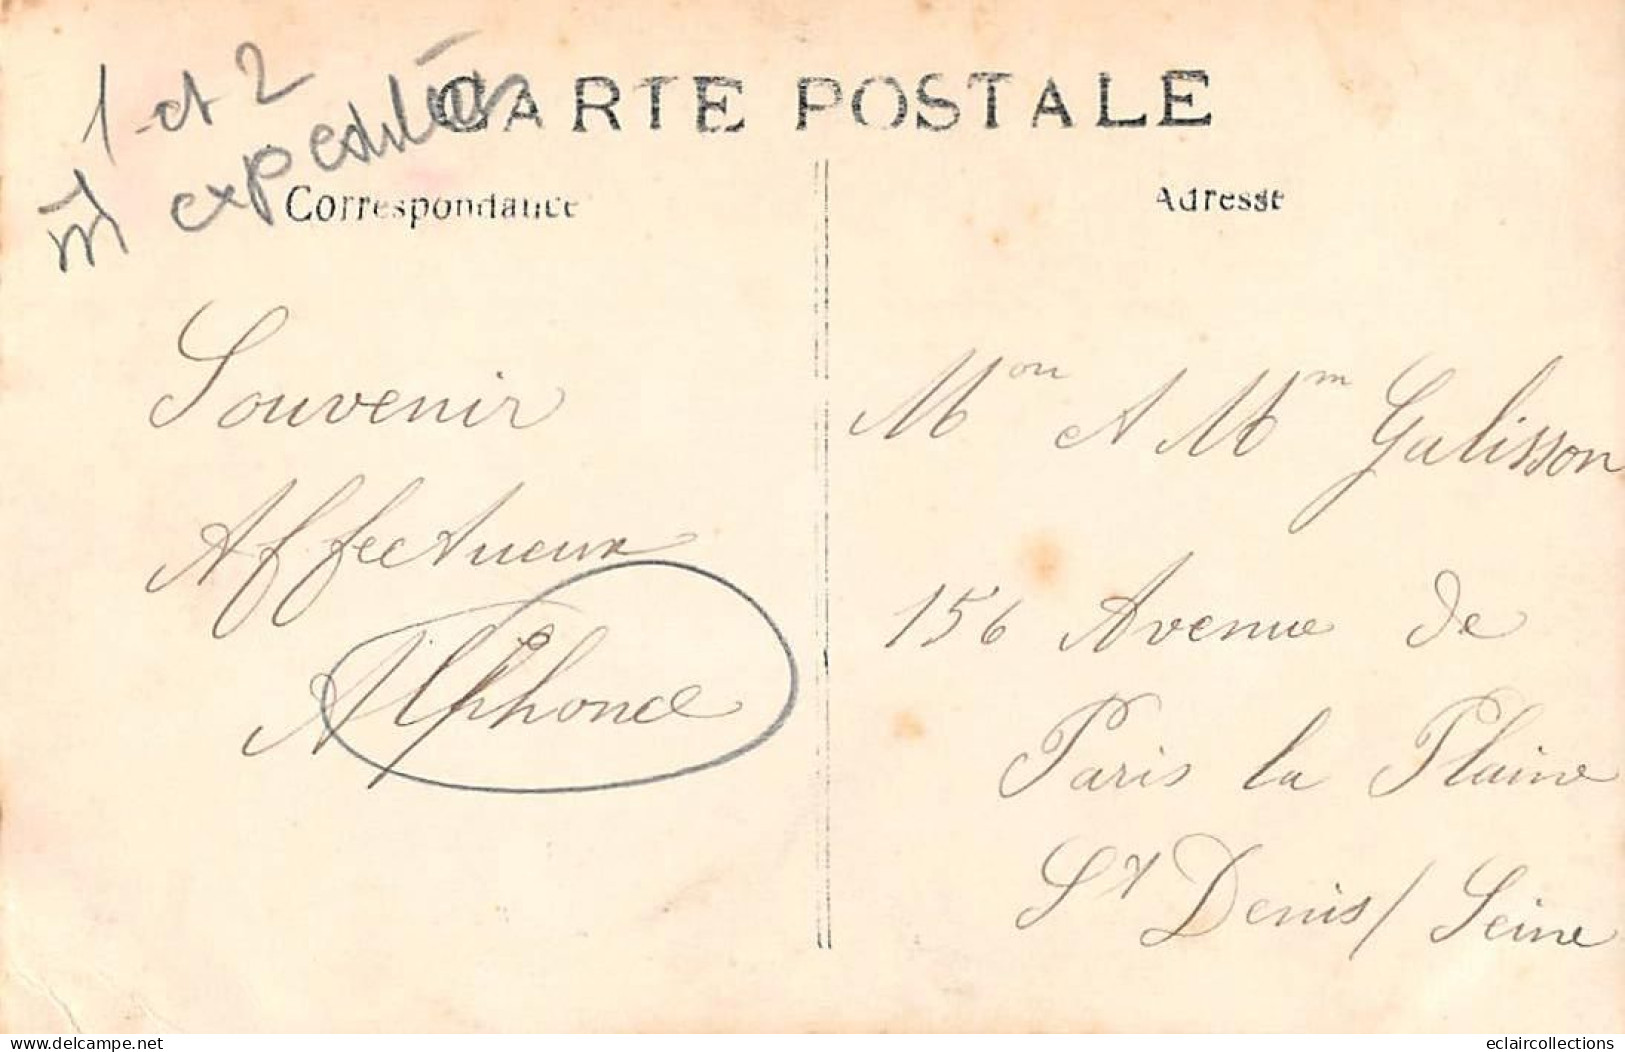 1 et 2
expediée
CARTE POSTALE
Correspondance
Adresse
Souvenir
Affectueux
Alphonce
Mon et Mm Galisson
156 Avenue de
Paris la Plaine
St Denis / Seine
delcampe.net
eclaircollections